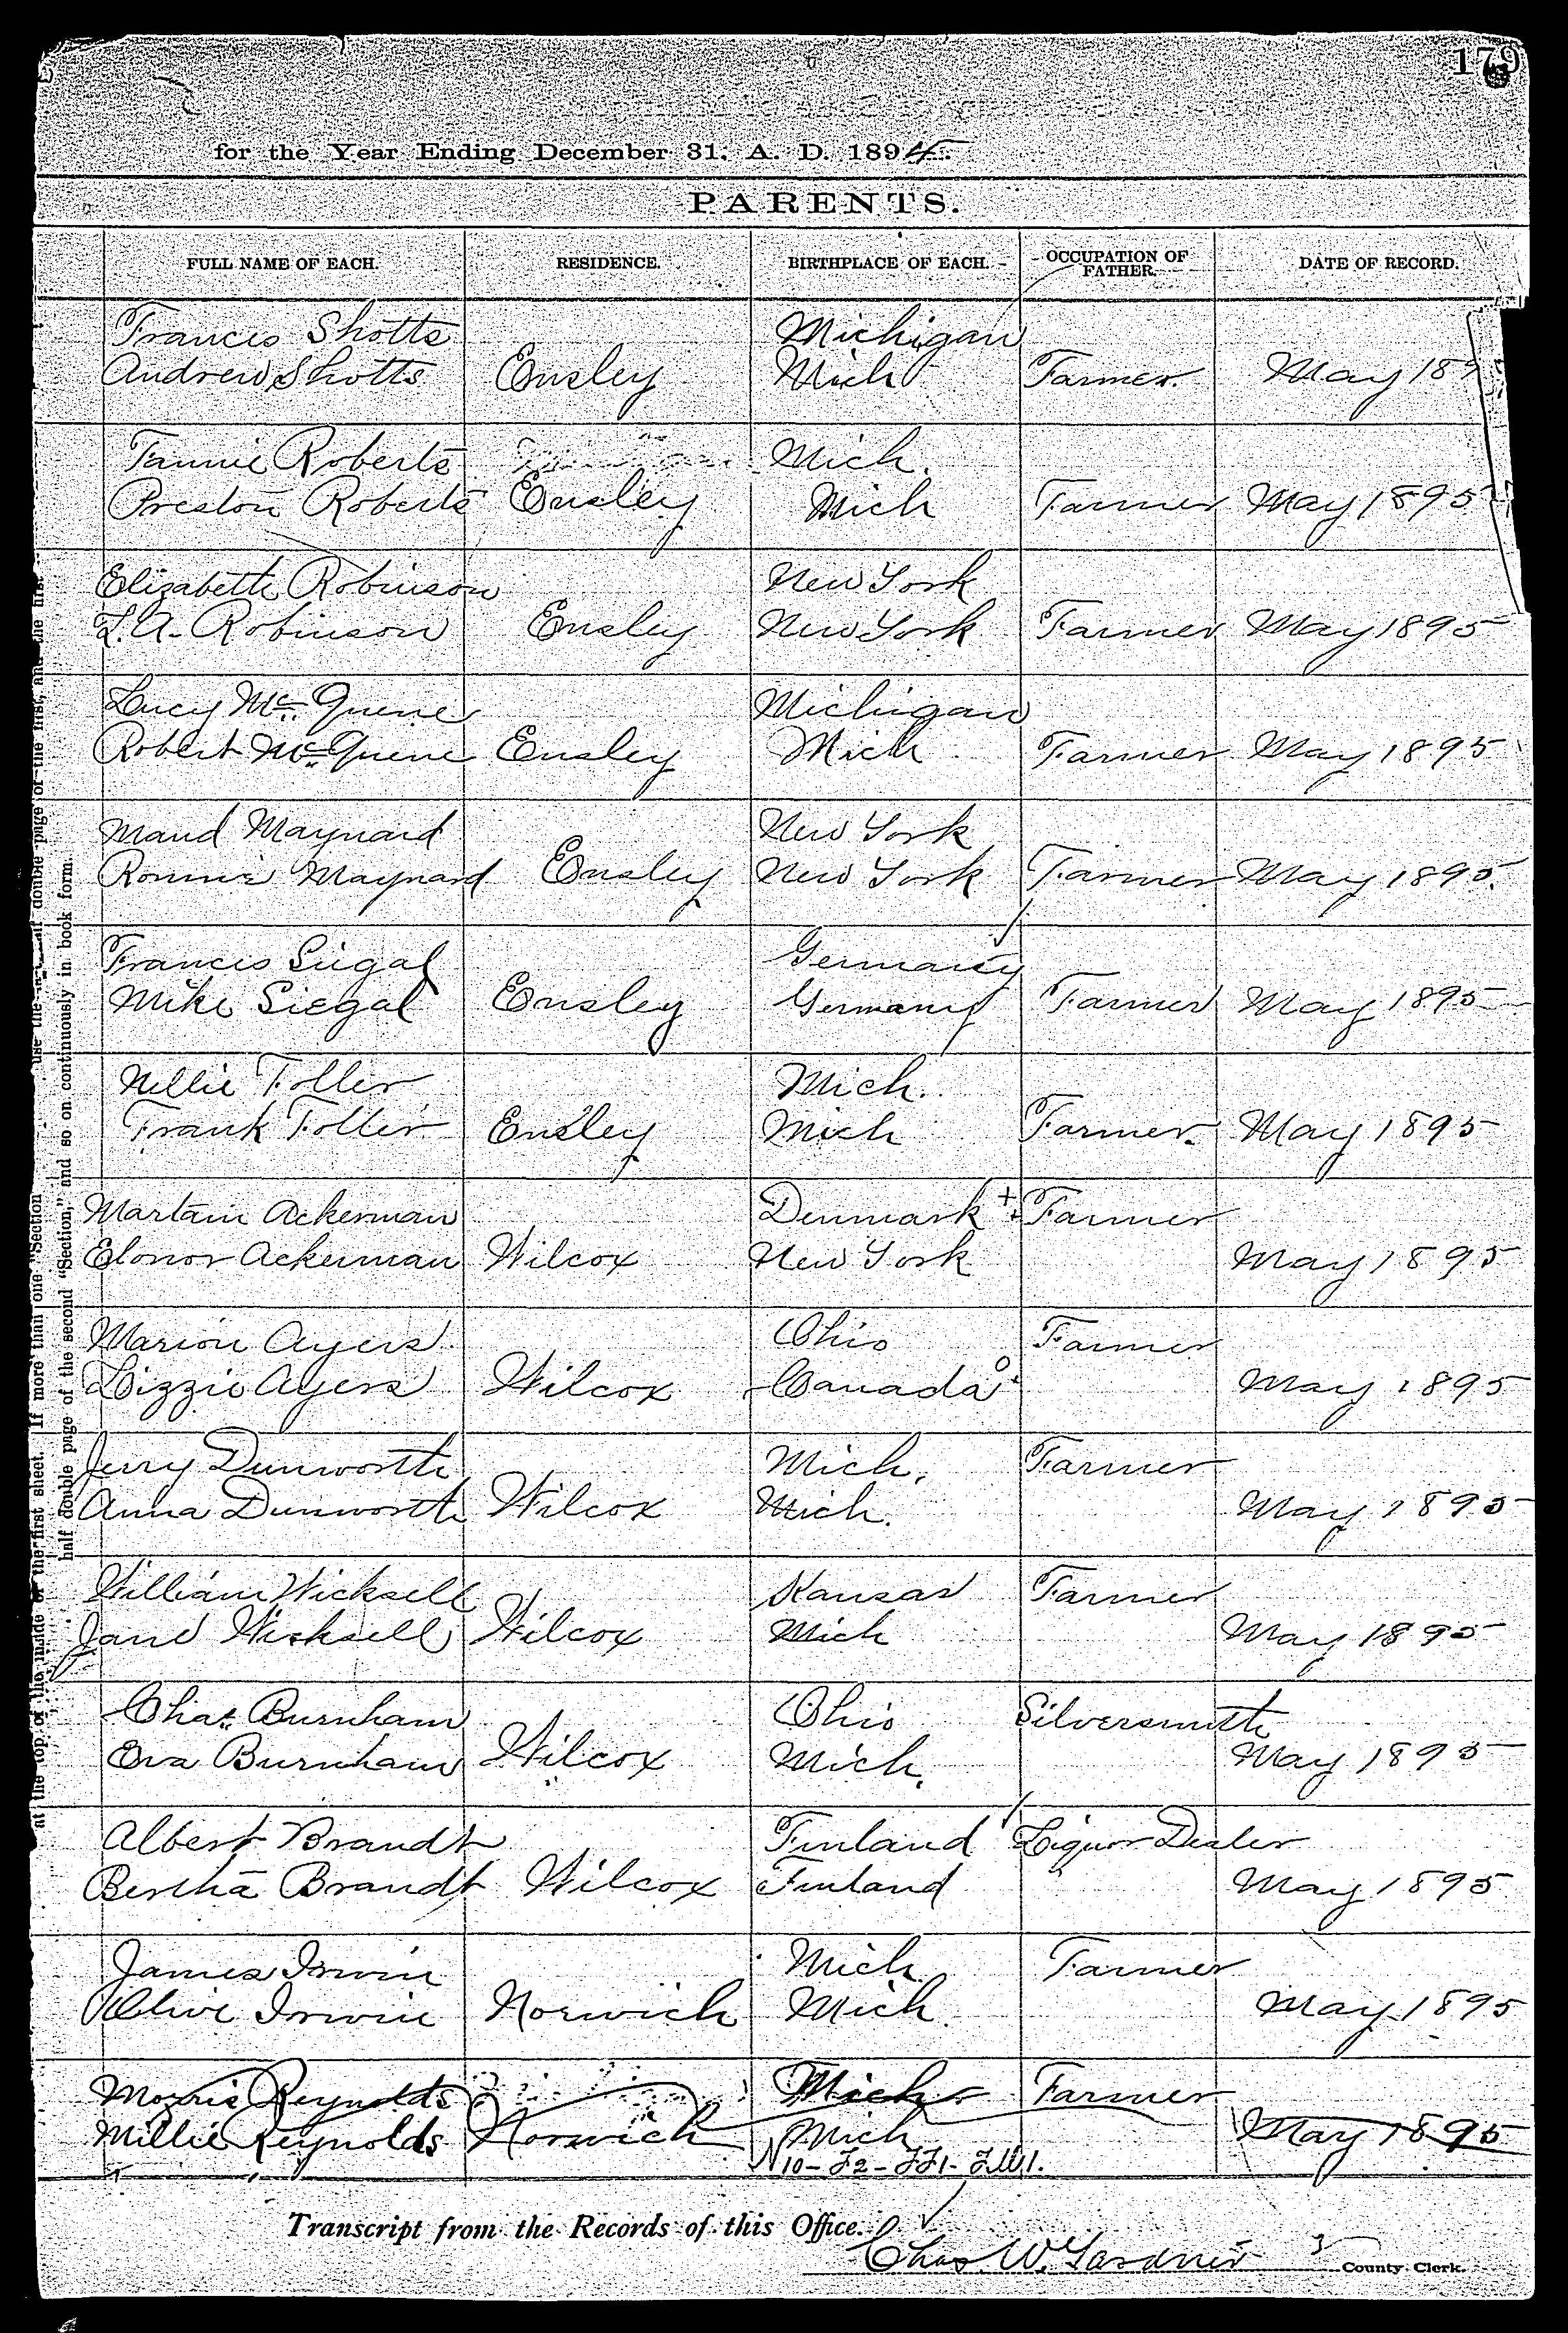 179
for the Year Ending December 31, A. D. 1894.
PARENTS.
FULL NAME OF EACH. RESIDENCE. BIRTHPLACE OF EACH. OCCUPATION OF FATHER. DATE OF RECORD.
Frances Shotts Michigan
Andrew Shotts Ensley Mich Farmer. May 189
Fannie Roberts Mich.
Preston Roberts Ensley Mich Farmer May 1895
Elizabeth Robinson New York
L. A. Robinson Ensley New York Farmer May 1895
Lucy Mc Quene Michigan
Robert Mc Quene Ensley Mich Farmer May 1895
Maud Maynard New York
Ronnie Maynard Ensley New York Farmer May 1895.
Frances Siegal Germany
Mike Siegal Ensley Germany Farmer May 1895
Nellie Foller Mich.
Frank Foller Ensley Mich Farmer. May 1895
Martain Ackerman Denmark + Farmer
Elonor Ackerman Wilcox New York May 1895
Marion Ayers Ohio Farmer
Lizzie Ayers Wilcox Canada May 1895
Jerry Dunworth Mich. Farmer
Anna Dunworth Wilcox Mich. May 1895
William Wicksell Kansas Farmer
Jane Wicksell Wilcox Mich May 1895
Chas. Burnham Ohio Silversmith
Eva Burnham Wilcox Mich. May 1895
Albert Brandt Finland Liquor Dealer
Bertha Brandt Wilcox Finland May 1895
James Irwin Mich Farmer
Olive Irwin Norwich Mich. May 1895
Morris Reynolds Mich Farmer
Millie Reynolds Norwich Mich May 1895
N 10 - F2 - FF1 - FM1.
Transcript from the Records of this Office.
Chas. W. Gardner County Clerk.
at the top of the inside of the first sheet. If more than one "Section
half double page of the second "Section," and so on continuously in book form.